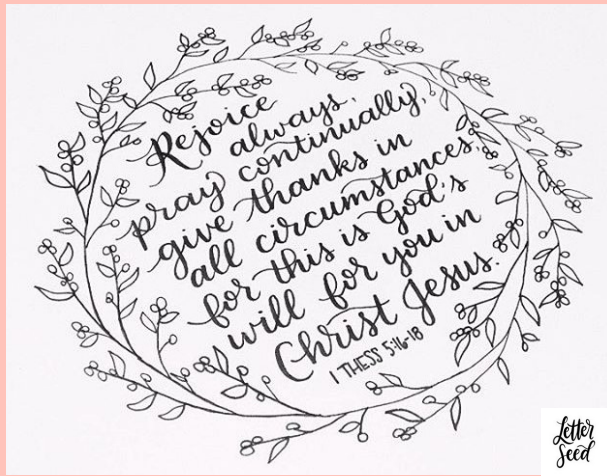 Rejoice
always,
pray continually,
give thanks in
all circumstances;
for this is God's
will for you in
Christ Jesus.
1 THESS 5:16-18
Letter
Seed